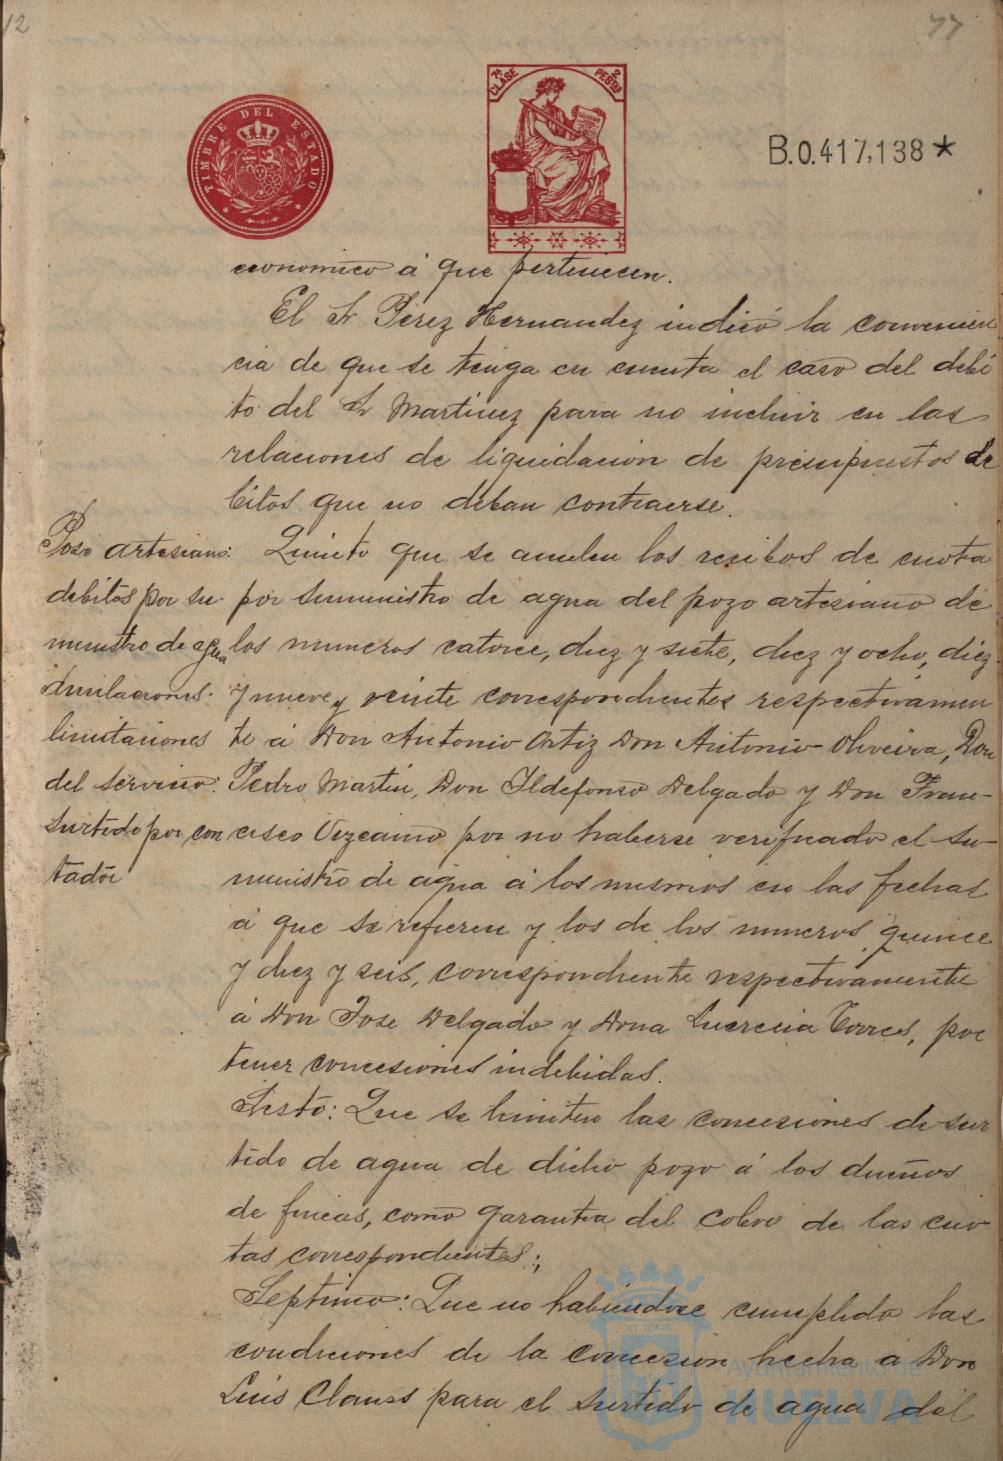 12
77
TIMBRE DEL ESTADO
7ª CLASE
2 PESTAS
B.0.417,138*
economico á que pertenecen.
El Sr Pérez Hernandez indicó la convenien
cia de que se tenga en cuenta el caso del debi
to del Sr Martinez para no incluir en las
relaciones de liquidacion de presupuestos de
bitos que no deban contraerse.
Pozo artesiano:
debitos por su-
ministro de agua
Anulaciones.
limitaciones
del servicio:
Surtido por con
tador
Quinto que se anulen los recibos de cuota
por suministro de agua del pozo artesiano de
los numeros catorce, diez y siete, diez y ocho, diez
y nueve y veinte correspondientes respectivamen
te á Don Antonio Ortiz Don Antonio Oliveira, Don
Pedro Martin, Don Ildefonso Delgado y Don Fran-
cisco Vizcaino por no haberse verificado el su-
ministro de agua á los mismos en las fechas
á que se refieren y los de los numeros quince
y diez y seis, correspondiente respectivamente
á Don Jose Delgado y Dona Lucrecia Torres, por
tener concesiones indebidas.
Sesto: Que se limiten las concesiones de sur
tido de agua de dicho pozo á los dueños
de fincas, como garantia del cobro de las cuo
tas correspondientes;
Septimo: Que no habiendose cumplido las
condiciones de la concesion hecha á Don
Luis Clauss para el surtido de agua del
Ayuntamiento de
HUELVA